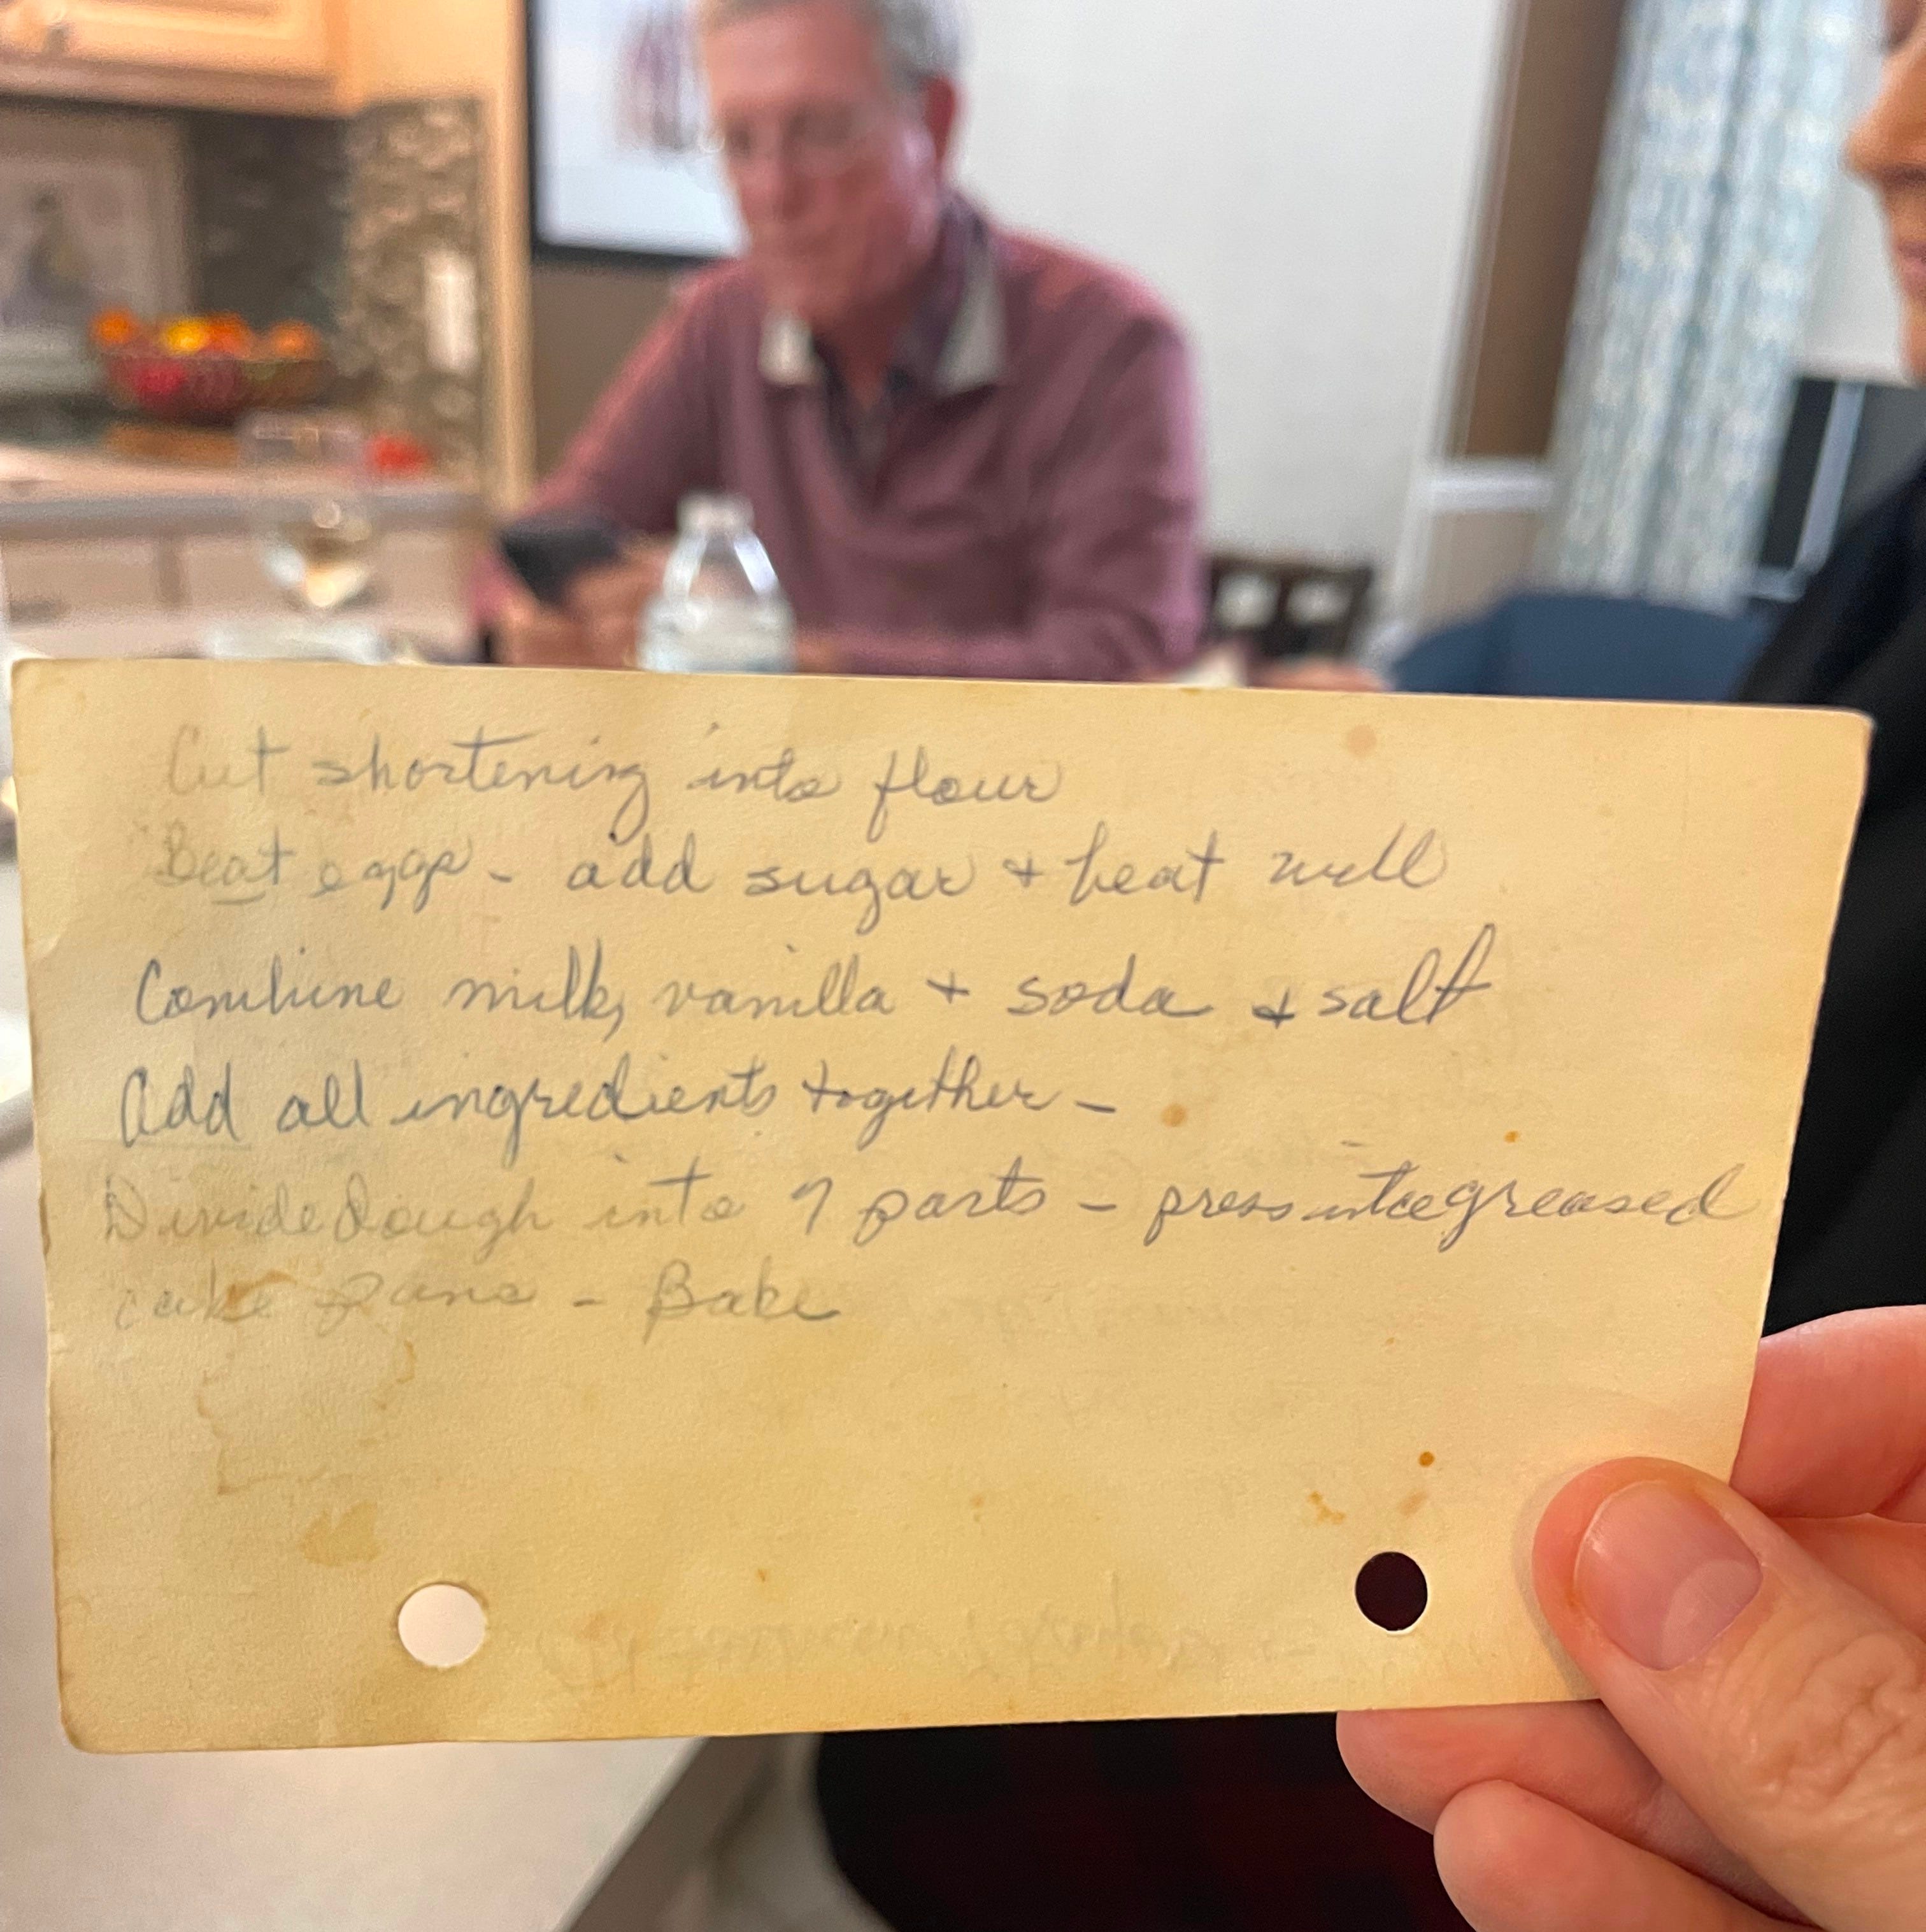 Cut shortening into flour
Beat eggs - add sugar + beat well
Combine milk, vanilla + soda + salt
Add all ingredients together -
Divide Dough into 7 parts - press into greased
cake pans - Bake